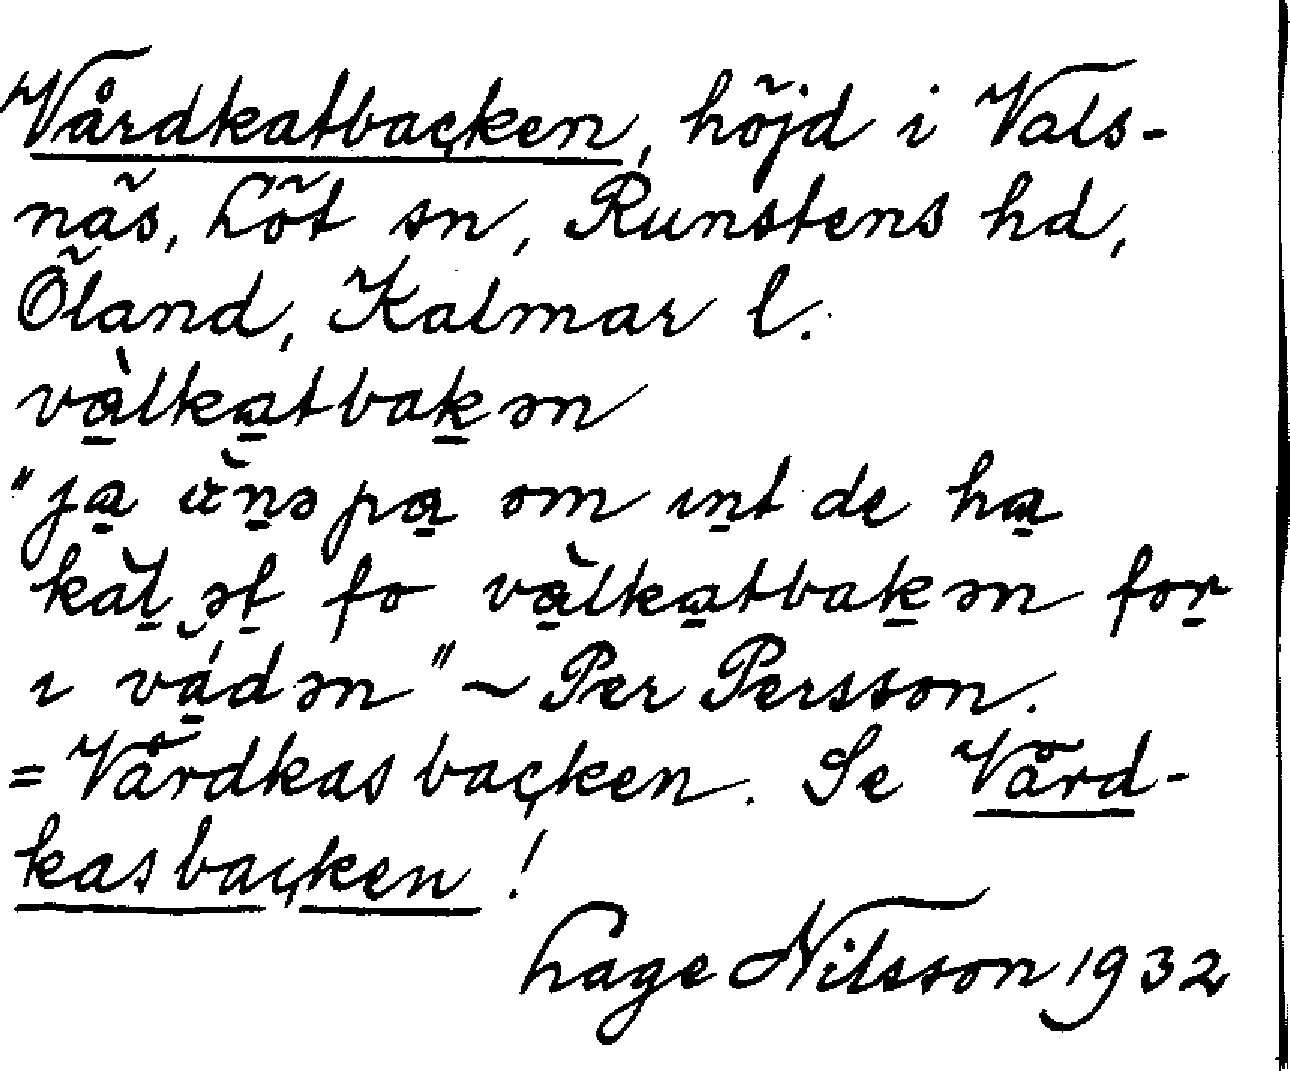 Vårdkatbacken, höjd i Vals-
näs, Löt sn, Runstens hd,
Öland, Kalmar l.
vàlkatbakən
"ja ǜnspa om ınt de ha
kàl ət fo vàlkatbakən for
ı vádən" ~ Per Persson.
= Vårdkasbacken. Se Vård-
kasbacken!
Lage Nilsson 1932